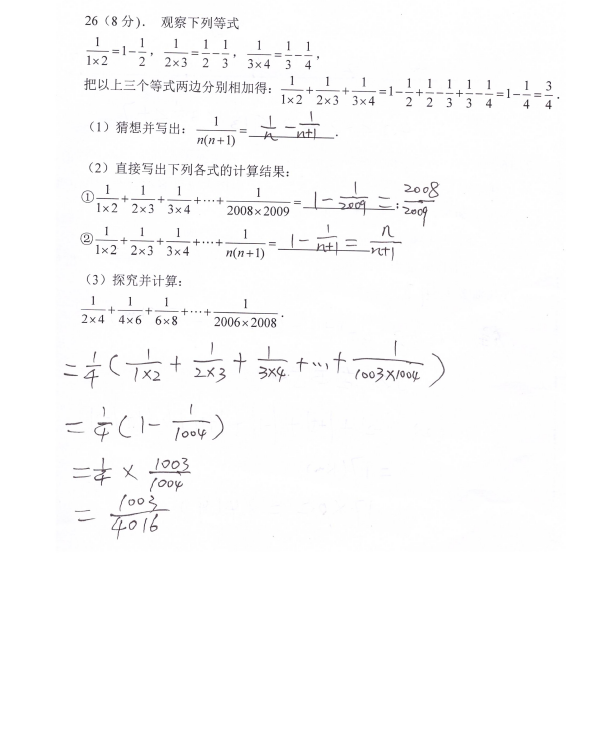 26(8分). 观察下列等式
1/(1×2)=1-1/2, 1/(2×3)=1/2-1/3, 1/(3×4)=1/3-1/4,
把以上三个等式两边分别相加得: 1/(1×2)+1/(2×3)+1/(3×4)=1-1/2+1/2-1/3+1/3-1/4=1-1/4=3/4.
(1)猜想并写出: 1/(n(n+1))= 1/n - 1/(n+1) .
(2)直接写出下列各式的计算结果:
①1/(1×2)+1/(2×3)+1/(3×4)+…+1/(2008×2009)= 1-1/2009 = ; 2008/2009
②1/(1×2)+1/(2×3)+1/(3×4)+…+1/(n(n+1))= 1-1/(n+1) = n/(n+1)
(3)探究并计算:
1/(2×4)+1/(4×6)+1/(6×8)+…+1/(2006×2008).
=1/4(1/(1×2)+1/(2×3)+1/(3×4)+…+1/(1003×1004))
=1/4(1-1/1004)
=1/4×1003/1004
=1003/4016